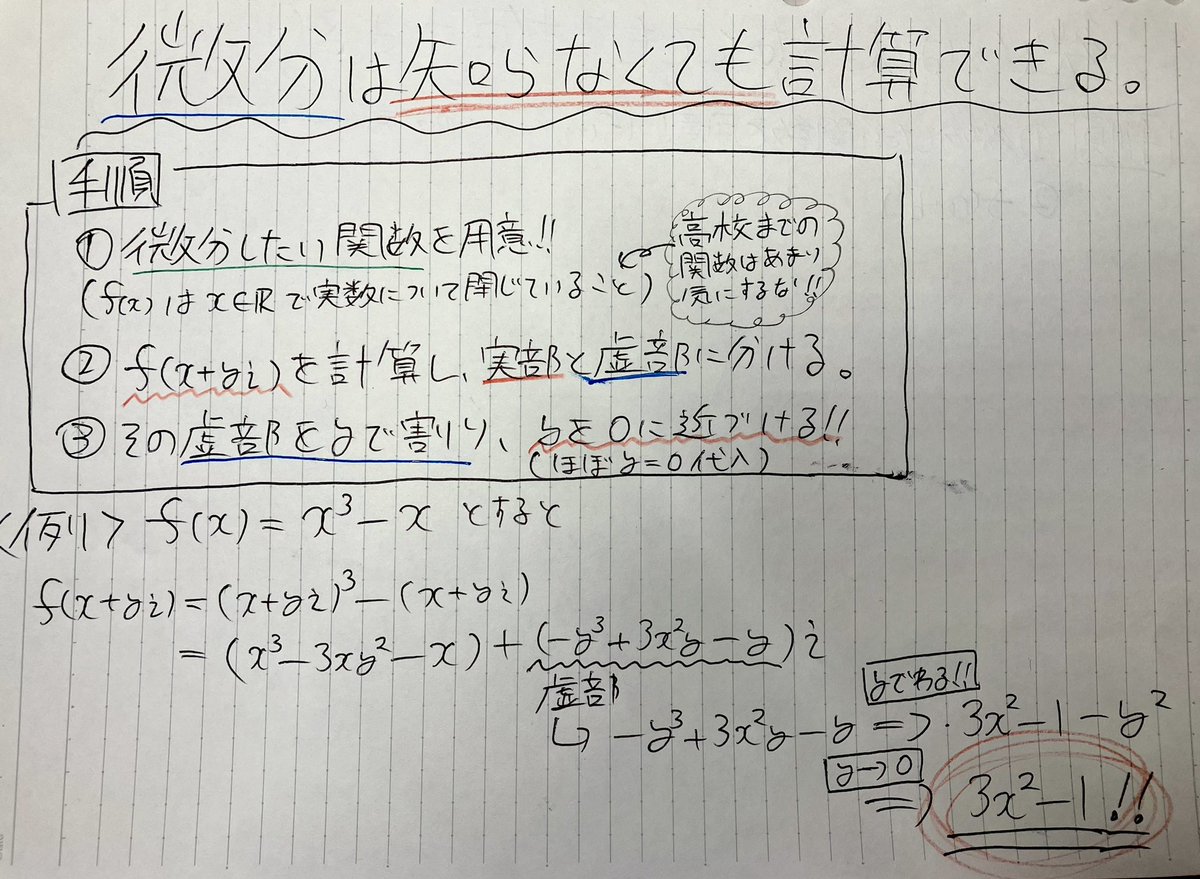 微分は知らなくても計算できる。
手順
① 微分したい関数を用意!!
(f(x)はx∈ℝで実数について閉じていること)
高校までの
関数はあまり
気にするな!!
② f(x+yi)を計算し、実部と虚部に分ける。
③ その虚部をyで割り、yを0に近づける!!
(ほぼy=0代入)
<例> f(x)=x³-x とすると
f(x+yi)=(x+yi)³-(x+yi)
=(x³-3xy²-x)+(-y³+3x²y-y)i
虚部
yでわる!!
↳ -y³+3x²y-y ⇒ 3x²-1-y²
y→0
⇒ 3x²-1!!